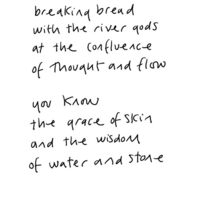 breaking bread
with the river gods
at the confluence
of Thought and flow
you know
the grace of skin
and the wisdom
of water and stone